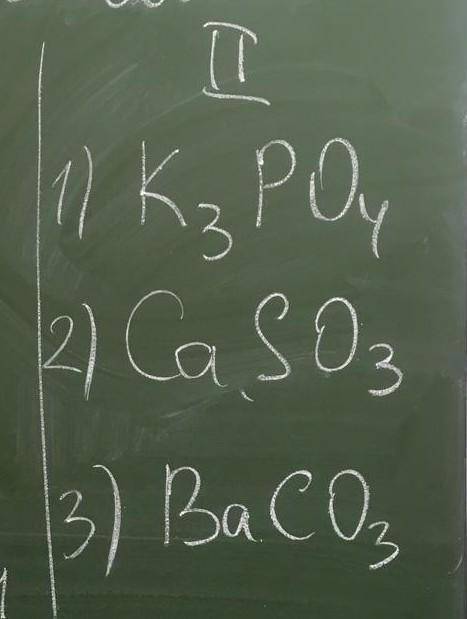 II
1) K₃PO₄
2) CaSO₃
3) BaCO₃